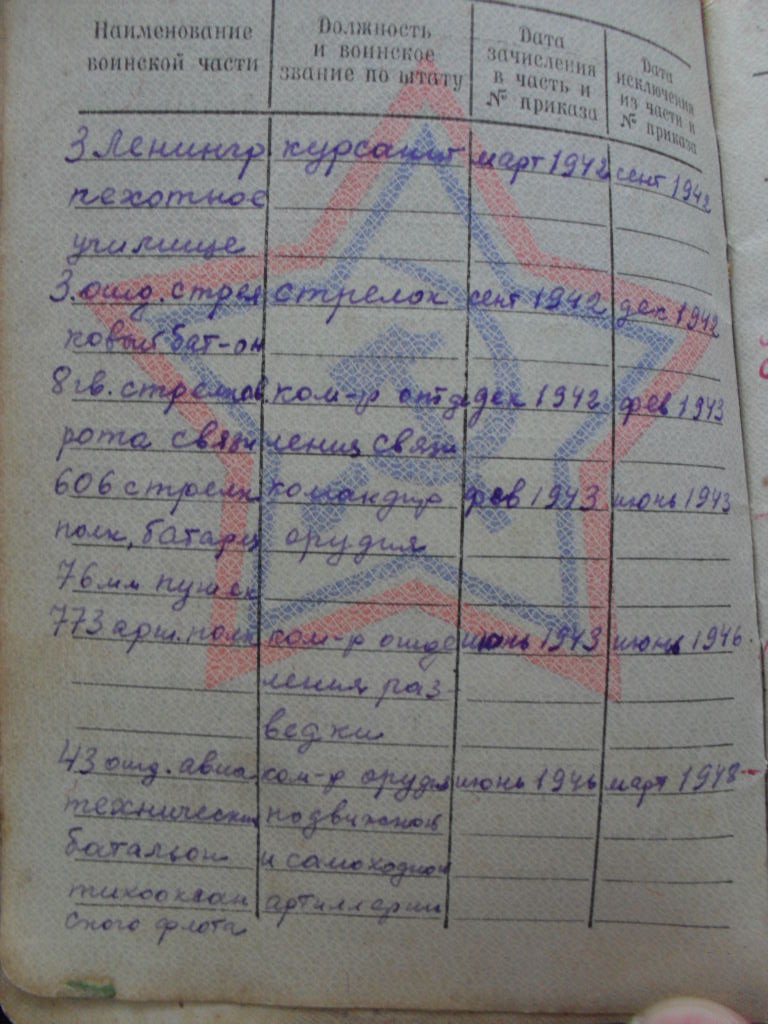 Наименование Должность Дата Дата
воинской части и воинское зачисления исключения
звание по штату в часть и из части и
№ приказа № приказа
3 Ленингр курсант март 1942 сент 1942
пехотное
училище
3.отд. стрел стрелок сент 1942 дек 1942
ковый бат-он
8 гв. стрелков ком-р отде дек 1942 фев 1943
рота связи ления связи
606 стрелк командир фев 1943 июнь 1943
полк, батарея орудия
76 мм пушек
773 арт. полк ком-р отде июнь 1943 июнь 1946.
ления раз
ведки
43 отд. авиа ком-р орудия июнь 1946 март 1948
технический подвижной
батальон и самоходной
тихоокеан артиллерии
ского флота